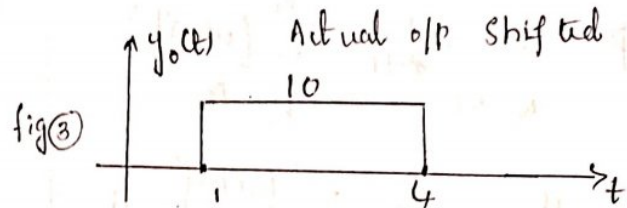 y₀(t) Actual o/p shifted
10
fig③
1 4 t